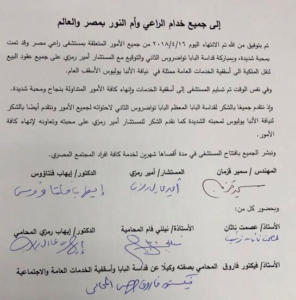 إلى جميع خدام الراعي وأم النور بمصر والعالم
تم بتوفيق من الله تم الانتهاء اليوم ٢٠١٨/٤/١٦ من جميع الأمور المتعلقة بمستشفى راعي مصر وقد تمت
بمحبة شديدة، وبمباركة قداسة البابا تواضروس الثاني والتوقيع مع المستشار أمير رمزي على جميع عقود البيع
لنقل الملكية الى أسقفية الخدمات العامة ممثلة في نيافة الأنبا يوليوس الأسقف العام.
وفي نفس الوقت تم تسليم المستشفى إلى أسقفية الخدمات وإنهاء كافة الأمور المتداولة بنجاح ومحبة شديدة.
وإذ نتقدم جميعا بالشكر لقداسة البابا المعظم البابا تواضروس الثاني لاحتوائه لجميع الأمور ونتقدم أيضا بالشكر
لنيافة الأنبا يوليوس لمحبته الشديدة، كما تقدم الشكر للمستشار أمير رمزي على محبته وتعاونه لإنهاء كافة
الأمور.
ونبشر الجميع بافتتاح المستشفى في مدة أقصاها شهرين لخدمة كافة أفراد المجتمع المصري.
المهندس / سمير قزمان المستشار أمير رمزي الدكتور/ إيهاب فلتاؤوس
وبحضور كل من:
الأستاذة/ عصمت ناثان الأستاذة/ نيللي فام المحامية الدكتور/ إيهاب رمزي المحامي
الأستاذ/ فيكتور فاروق المحامي بصفته وكيلا عن قداسة البابا وأسقفية الخدمات العامة والاجتماعية